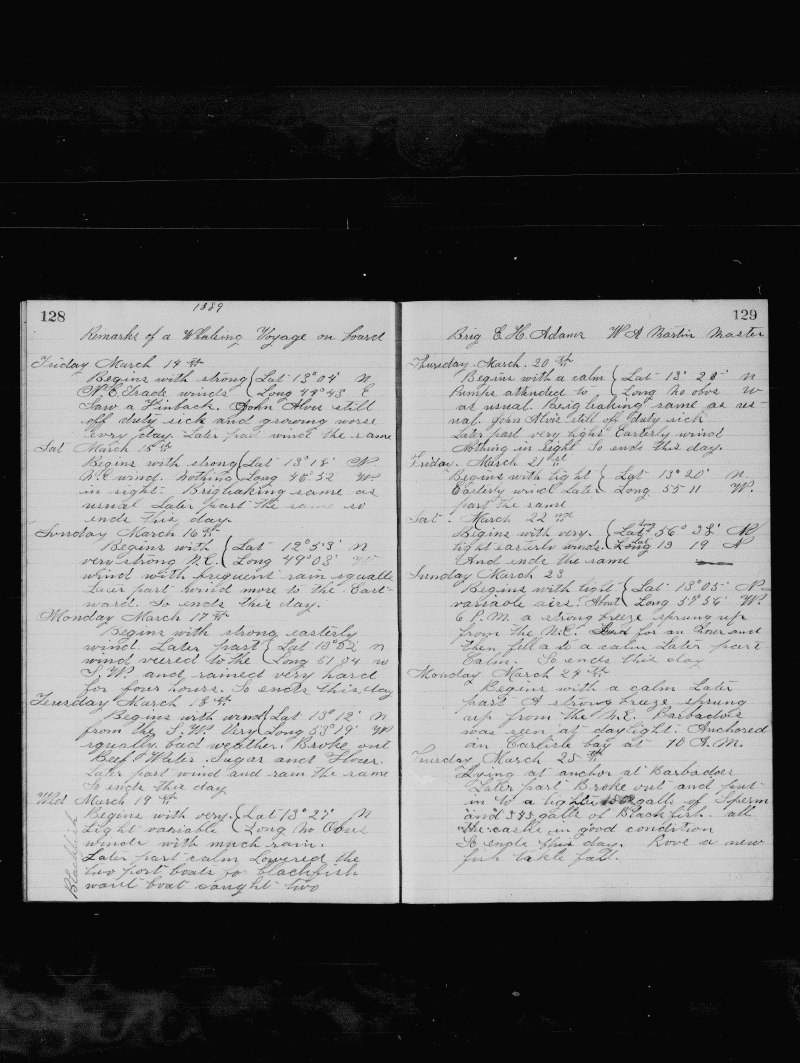 128
1889
Remarks of a Whaling Voyage on board
Friday March 14th
Begins with strong Lat 13° 04' N
N.E. Trade winds Long 44° 48 E
Saw a Finback. John Alves still
off duty sick and growing worse
every day. Later part wind the same
Sat March 15th
Begins with strong Lat 13° 18' N.
N.E. wind. nothing Long 46° 52 W.
in sight. Brig leaking same as
usual Later part the same so
ends this day.
Sunday March 16th
Begins with Lat 12° 53' N
very strong N.E. Long 49° 03' W
wind with frequent rain squalls
Later part wind more to the East-
ward. So ends this day.
Monday March 17th
Begins with strong easterly
wind. Later part Lat 13° 52 N
wind veered to the Long 51 04 W
S.W. and rained very hard
for four hours. So ends this day
Tuesday March 18th
Begins with wind Lat 13° 12' N
from the S.W. Very Long 53° 19' W
squally bad weather. Broke out
Beef Water. Sugar and Flour.
Later part wind and rain the same
So ends this day
Wed March 19th
Begins with very. Lat 13° 27' N
Light variable Long No Obs
winds with much rain.
Later part calm Lowered the
two port boats fo blackfish
waist boat caught two
Blackfish
129
Brig E. H. Adams W A Martin Master
Thursday. March. 20th
Begins with a calm Lat 13° 20' N
Pumps attended to Long No obs W
as usual. Brig leaking same as us-
ual. John Alvis still off duty sick
Later part very light Easterly wind
Nothing in sight So ends this day.
Friday. March 21st
Begins with light Lat 13° 20' N.
Easterly wind Later Long 55 11 W.
part the same
Sat. March 22nd
Begins with very. Long 56° 38' N
light easterly winds. Lat 13 19 N
And ends the same
Sunday March 23
Begins with light Lat 13° 05' N
variable airs. About Long 57° 56' W.
6 P.M. a strong breeze sprung up
from the N.E. for an hour and
then fell a to a calm Later part
Calm. So ends this day
Monday March 24th
Begins with a calm Later
part A strong breeze sprung
up from the N.E. Barbadoes
was seen at daylight. Anchored
an Carlisle bay at 10 A.M.
Tuesday March 25th
Lying at anchor at Barbadoes
Later part Broke out and put
in to a lighter galls of Sperm
and galls of Blackfish. all
the casks in good condition
So ends this day. Rove a new
fish takle fall.